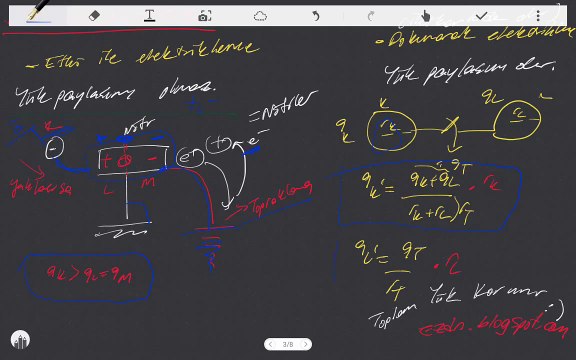 - Etki ile elektriklenme
Yük paylaşımı olmaz.
Nötr
= Nötrler
(-)
+ 0 -
L M
e⁻ (+) e⁻
yaklaşırsa
Topraklama
qK > qL = qM
- Dokunarak elektriklenme
Yük paylaşımı olur.
K
qK rK
qL L
rL
qK' = qK + qL / rK + rL . rK
qT
rT
qL' = qT / rT . rL
Toplam Yük Korunur :)
ezdn.blogspot.com
3/8